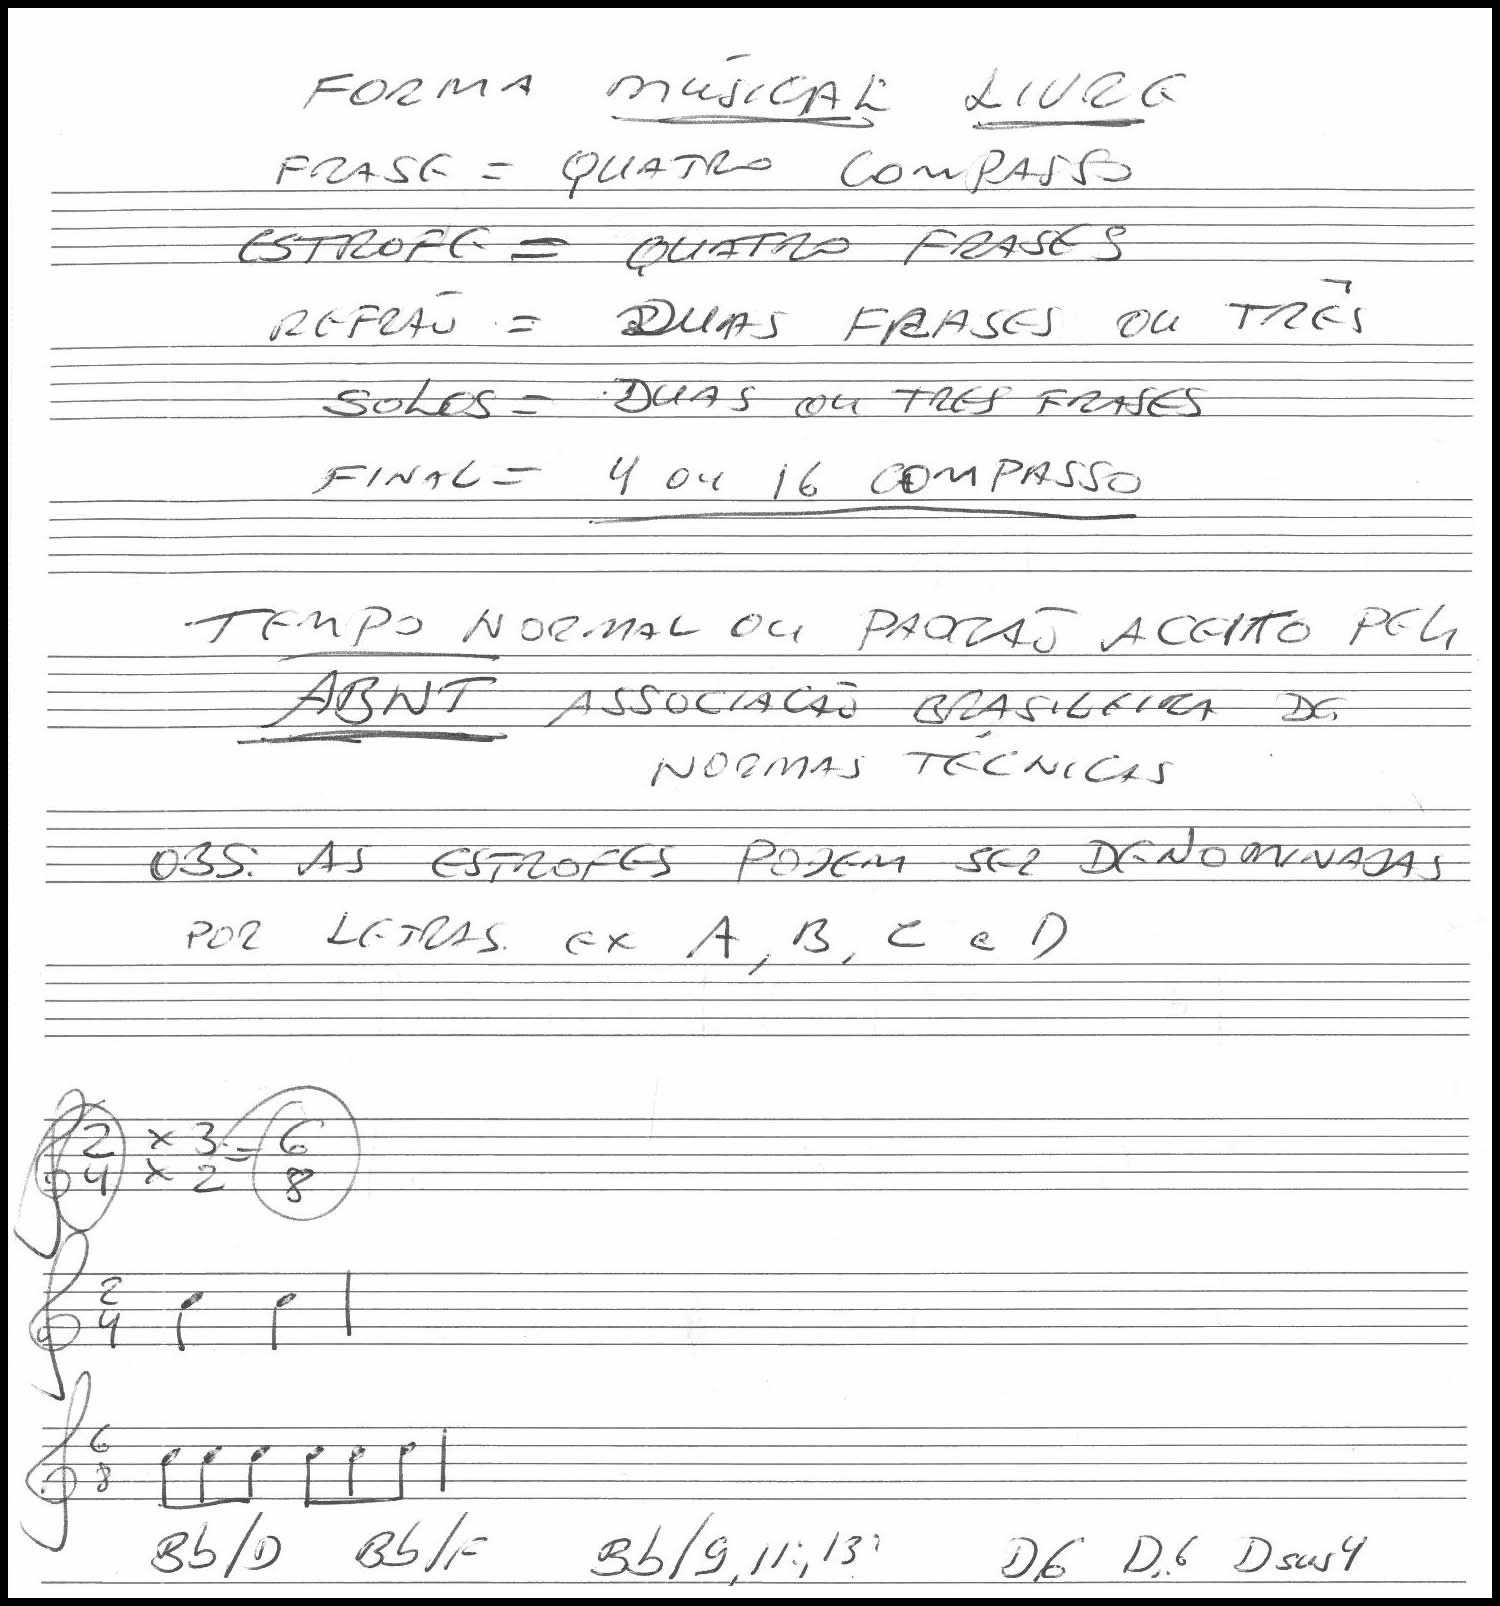 FORMA MÚSICAL LIVRE
FRASE = QUATRO COMPASSO
ESTROFE = QUATRO FRASES
REFRÃO = DUAS FRASES OU TRÊS
SOLOS = DUAS OU TRES FRASES
FINAL = 4 OU 16 COMPASSO
TEMPO NORMAL OU PADRÃO ACEITO PELA
ABNT ASSOCIACÃO BRASILEIRA DE
NORMAS TÉCNICAS
OBS. AS ESTROFES PODEM SER DENOMINADAS
POR LETRAS. EX A, B, C e D
2 x 3 = 6
4 x 2 8
2
4
6
8
Bb/D Bb/F Bb/9, 11, 13 D6 D,6 Dsus4